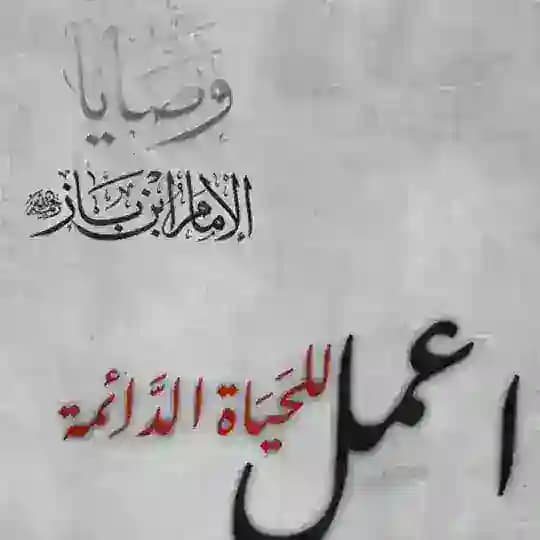 وصايا
الإمام ابن باز
اعمل للحياة الدَّائمة